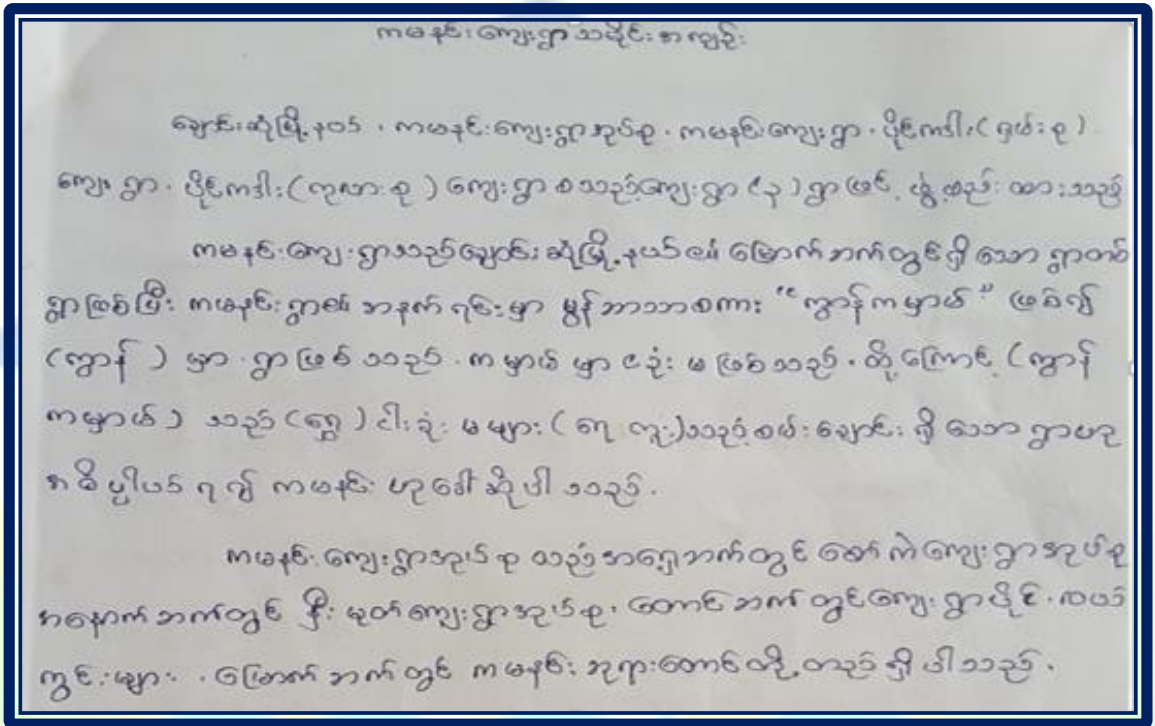 ကမနင်းကျေးရွာသမိုင်းအကျဉ်း
ချောင်းဆုံမြို့နယ်၊ ကမနင်းကျေးရွာအုပ်စု၊ ကမနင်းကျေးရွာ၊ ပိုင်ကဒါး(ရှမ်းစု)
ကျေးရွာ၊ ပိုင်ကဒါး(ကုလားစု)ကျေးရွာစသည့်ကျေးရွာ(၃)ရွာဖြင့် ဖွဲ့စည်းထားသည်
ကမနင်းကျေးရွာသည်ချောင်းဆုံမြို့နယ်၏ မြောက်ဘက်တွင်ရှိသော ရွာတစ်
ရွာဖြစ်ပြီး ကမနင်းရွာ၏ အနက်ရင်းမှာ မွန်ဘာသာစကား "ကွာန်ကမှာယ်" ဖြစ်၍
(ကွာန်) မှာ ရွာဖြစ်သည်၊ ကမှာယ်မှာ ငခုံးမဖြစ်သည်၊ ထို့ကြောင့် (ကွာန်
ကမှာယ်) သည် (ရွှေ) ငါးခုံးမများ (ကူး)သည့်စမ်းချောင်းရှိသောရွာဟု
အဓိပ္ပါယ်ရ၍ ကမနင်းဟုခေါ်ဆိုပါသည်၊
ကမနင်းကျေးရွာအုပ်စုသည်အရှေ့ဘက်တွင် တော်ကဲကျေးရွာအုပ်စု
အနောက်ဘက်တွင် နှီးမုတ်ကျေးရွာအုပ်စု၊ တောင်ဘက်တွင်ကျေးရွာပိုင်လယ်
ကွင်းများ၊ မြောက်ဘက်တွင် ကမနင်းဘုရားတောင်တို့တည်ရှိပါသည်၊